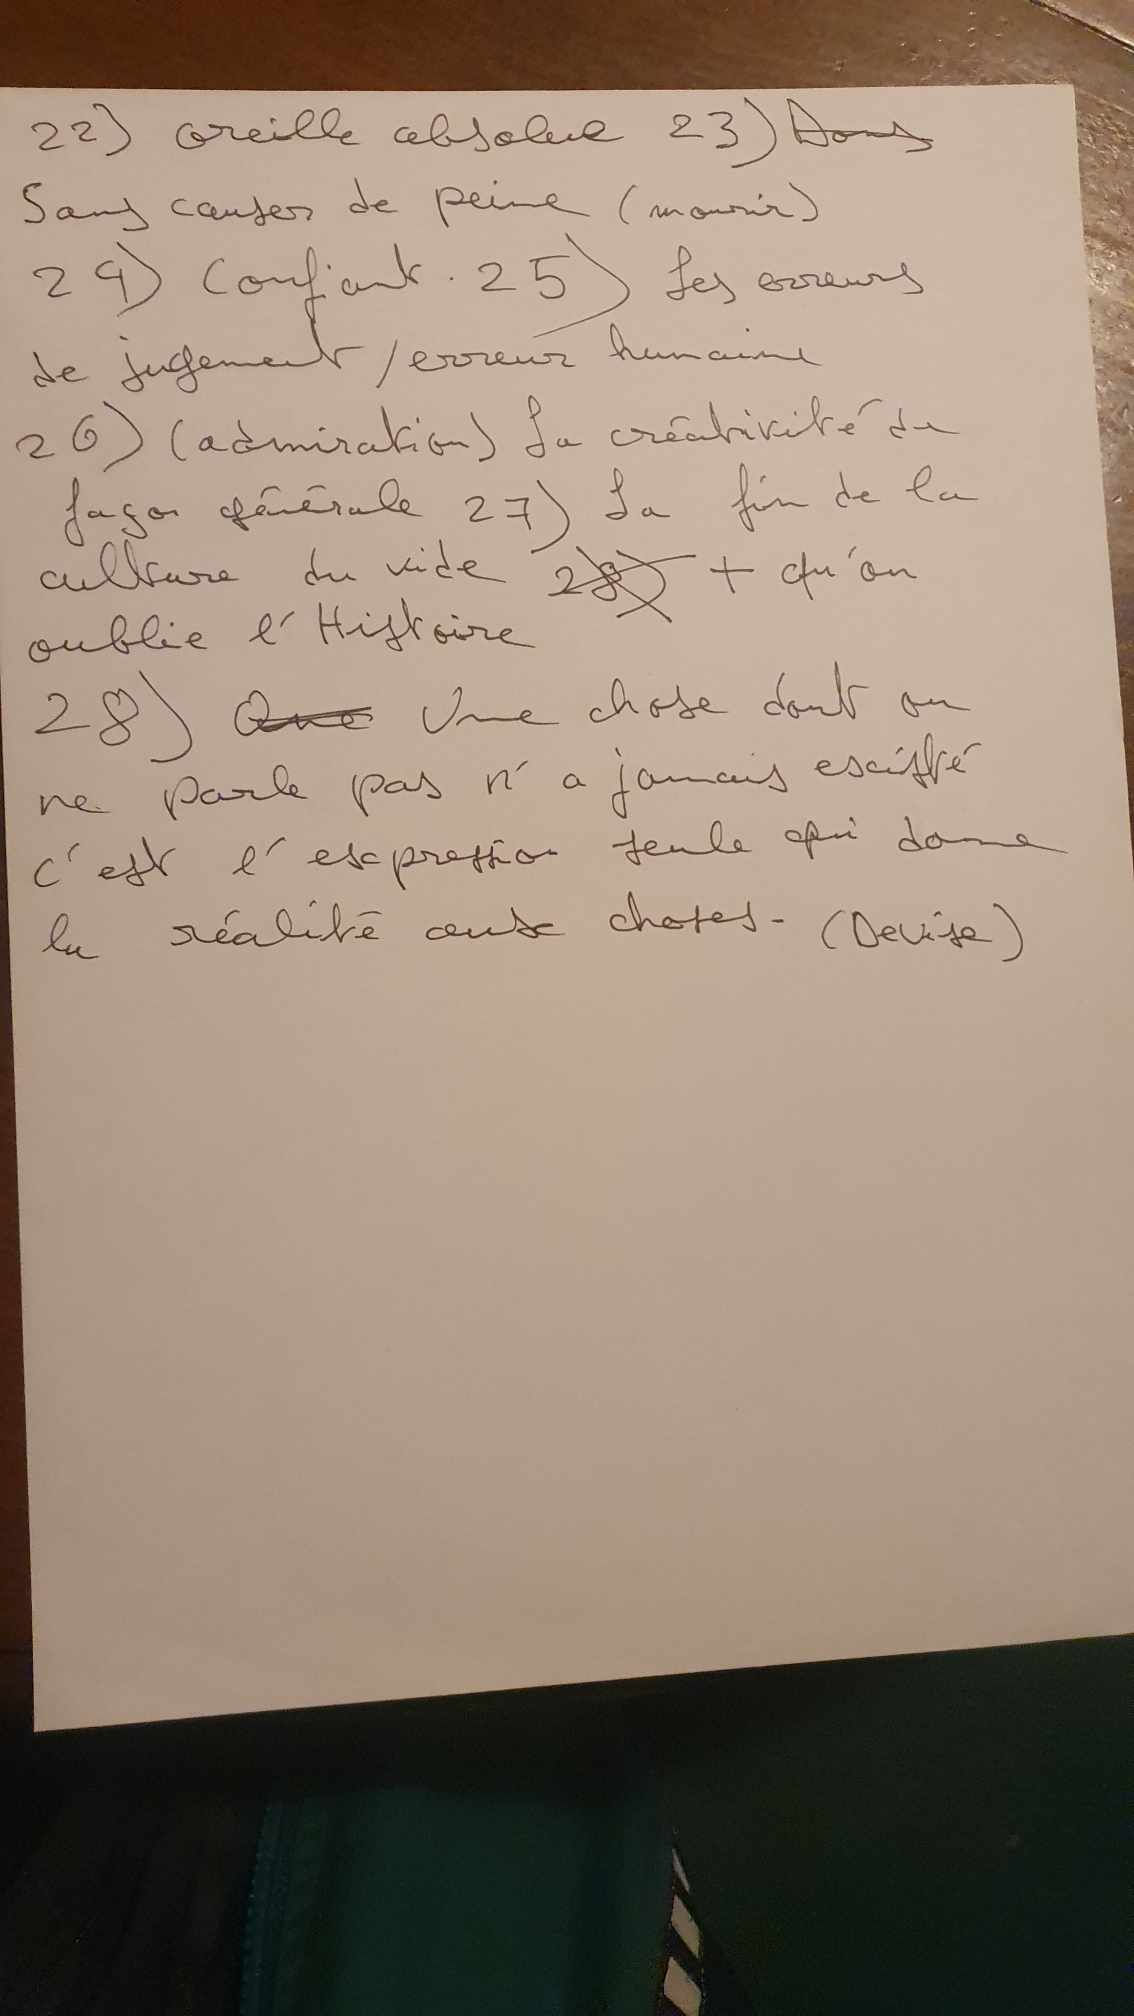 22) oreille absolue 23) Dans
Sans causer de peine (mourir)
24) Confiant. 25) Les erreurs
de jugement / erreur humaine
26) (admiration) La créativité de
façon générale 27) La fin de la
culture du vide 28) + qu'on
oublie l'Histoire
28) Que Une chose dont on
ne parle pas n'a jamais existé
c'est l'expression seule qui donne
la réalité aux choses - (Devise)